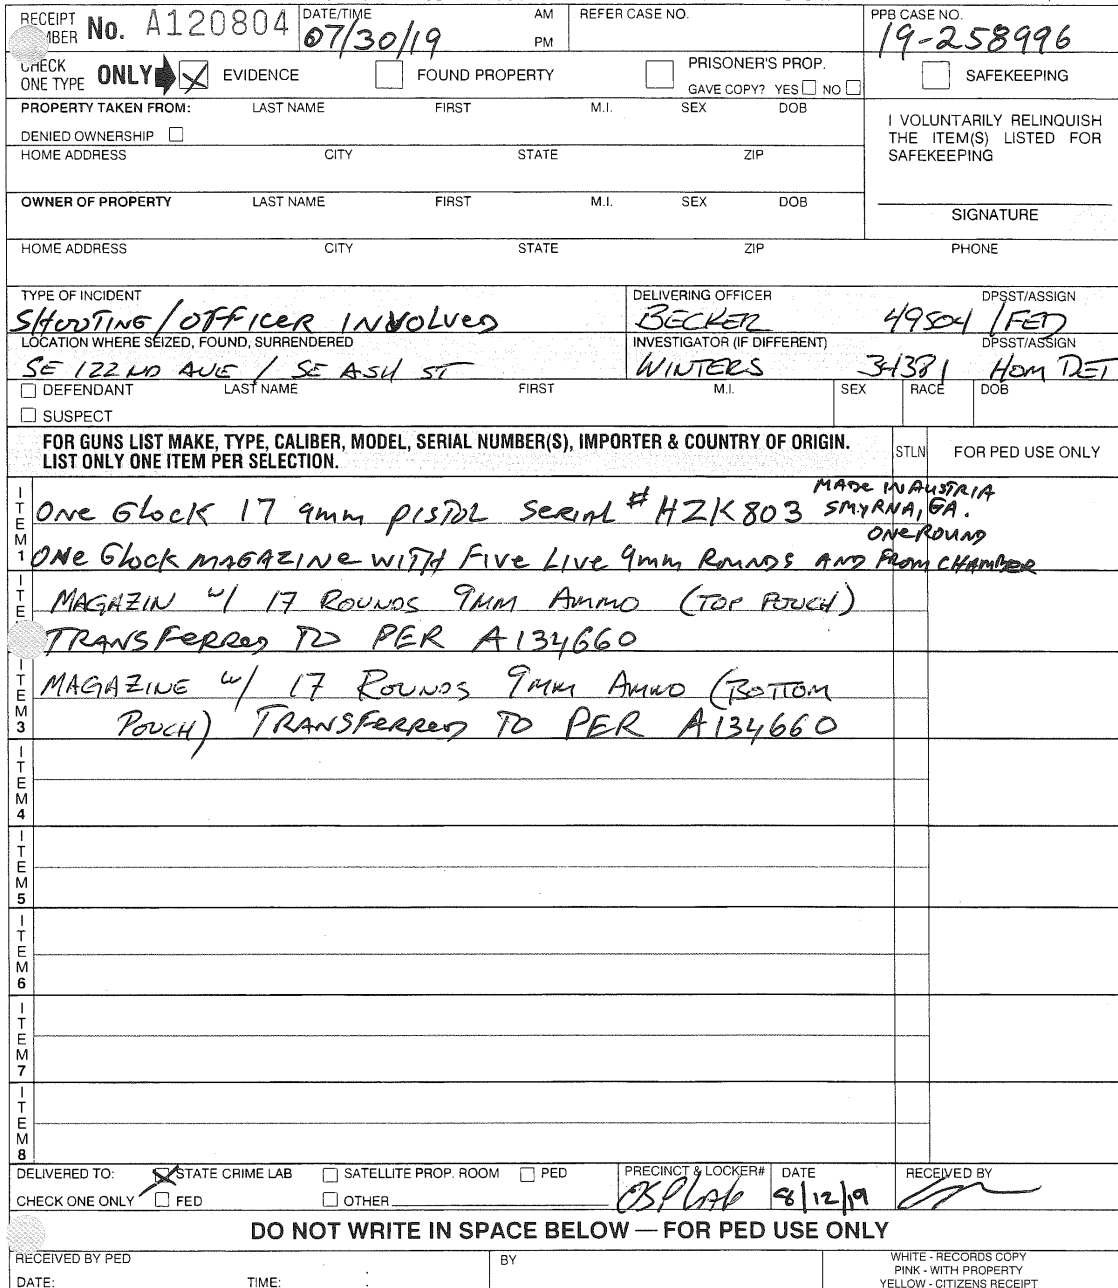 RECEIPT NUMBER No. A120804 DATE/TIME 07/30/19 AM PM REFER CASE NO. PPB CASE NO. 19-258996
CHECK ONE TYPE ONLY EVIDENCE FOUND PROPERTY PRISONER'S PROP. GAVE COPY? YES NO SAFEKEEPING
PROPERTY TAKEN FROM: LAST NAME FIRST M.I. SEX DOB
DENIED OWNERSHIP
I VOLUNTARILY RELINQUISH
THE ITEM(S) LISTED FOR
SAFEKEEPING
HOME ADDRESS CITY STATE ZIP
OWNER OF PROPERTY LAST NAME FIRST M.I. SEX DOB
SIGNATURE
HOME ADDRESS CITY STATE ZIP PHONE
TYPE OF INCIDENT DELIVERING OFFICER DPSST/ASSIGN
SHOOTING/OFFICER INVOLVED BECKER 49504 /FED
LOCATION WHERE SEIZED, FOUND, SURRENDERED INVESTIGATOR (IF DIFFERENT) DPSST/ASSIGN
SE 122ND AVE / SE ASH ST WINTERS 34381 HOM DET
DEFENDANT LAST NAME FIRST M.I. SEX RACE DOB
SUSPECT
FOR GUNS LIST MAKE, TYPE, CALIBER, MODEL, SERIAL NUMBER(S), IMPORTER & COUNTRY OF ORIGIN.
LIST ONLY ONE ITEM PER SELECTION.
STLN FOR PED USE ONLY
ITEM 1
ONE GLOCK 17 9mm PISTOL SERIAL # HZK803 MADE IN AUSTRIA
SMYRNA, GA.
ONE GLOCK MAGAZINE WITH FIVE LIVE 9mm ROUNDS AND ONE ROUND FROM CHAMBER
ITE
MAGAZIN w/ 17 ROUNDS 9MM AMMO (TOP POUCH)
TRANSFERRED TO PER A134660
ITEM 3
MAGAZINE w/ 17 ROUNDS 9MM AMMO (BOTTOM
POUCH) TRANSFERRED TO PER A134660
ITEM 4
ITEM 5
ITEM 6
ITEM 7
ITEM 8
DELIVERED TO: STATE CRIME LAB SATELLITE PROP. ROOM PED PRECINCT & LOCKER# DATE RECEIVED BY
CHECK ONE ONLY FED OTHER OSP LAB 8/12/19
DO NOT WRITE IN SPACE BELOW — FOR PED USE ONLY
RECEIVED BY PED BY
DATE: TIME: :
WHITE - RECORDS COPY
PINK - WITH PROPERTY
YELLOW - CITIZENS RECEIPT